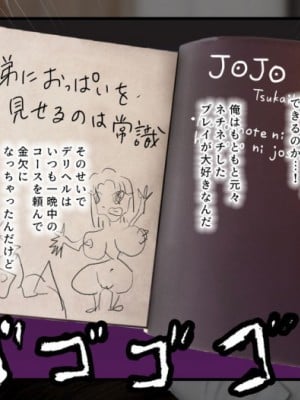 できるのか…！
俺はもともと元々
ネチネチした
プレイが大好きなんだ
弟におっぱいを
見せるのは常識
そのせいで
デリヘルは
いつも一晩中の
コースを頼んで
金欠に
なっちゃったんだけど
JOJO
Tsuka
ote ni
ni jo
ゴゴゴゴ